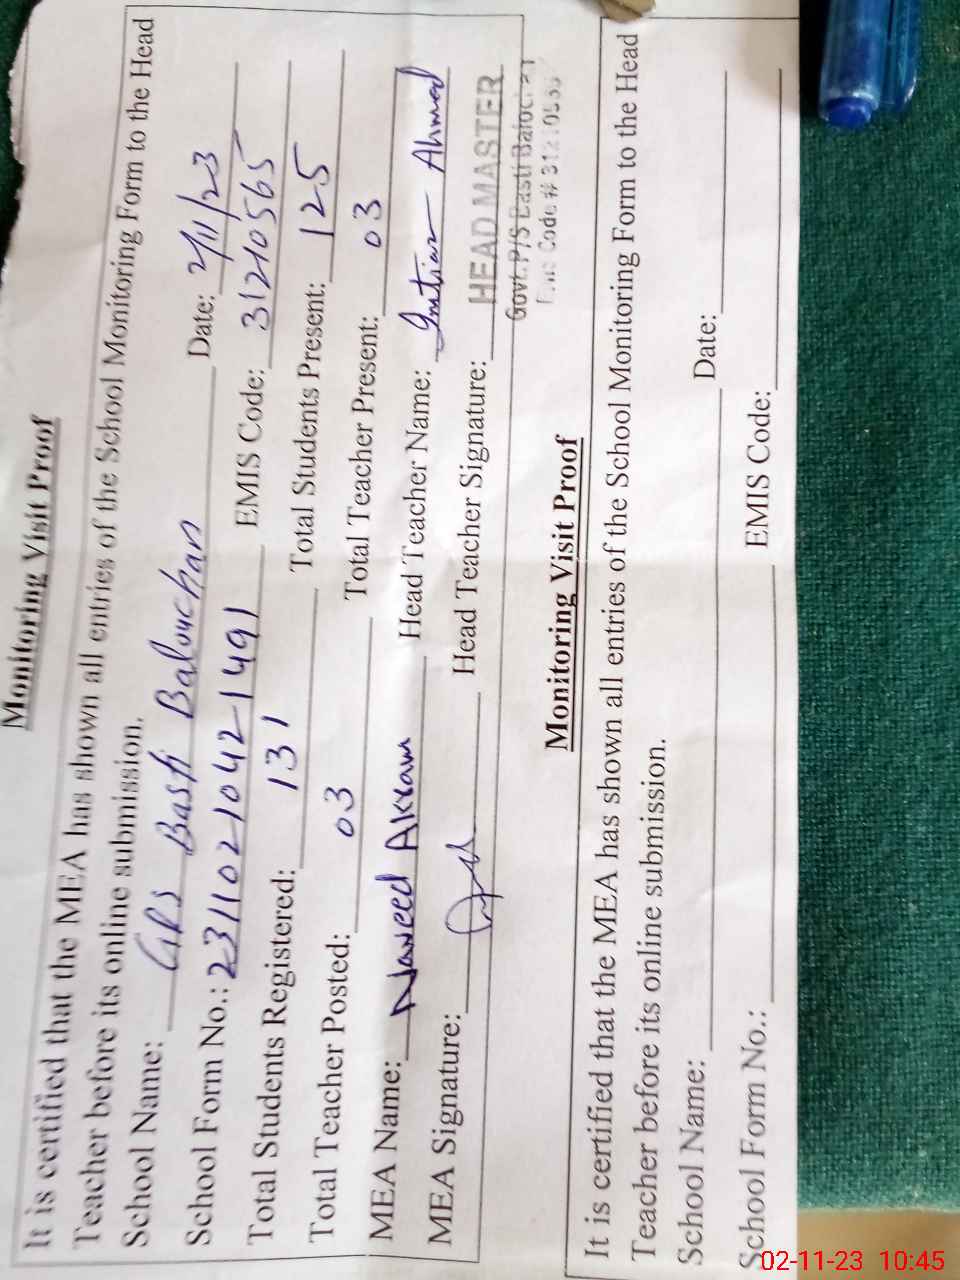 Monitoring Visit Proof
It is certified that the MEA has shown all entries of the School Monitoring Form to the Head
Teacher before its online submission.
School Name: GPS Basti Balouchan Date: 2/11/23
School Form No.: 23110210421491 EMIS Code: 31210565
Total Students Registered: 131 Total Students Present: 125
Total Teacher Posted: 03 Total Teacher Present: 03
MEA Name: Naveed Akram Head Teacher Name: Imtiaz Ahmed
MEA Signature: Head Teacher Signature:
HEAD MASTER
Govt. P/S Basti
Code # 31210565
Monitoring Visit Proof
It is certified that the MEA has shown all entries of the School Monitoring Form to the Head
Teacher before its online submission.
School Name: Date:
School Form No.: EMIS Code:
02-11-23 10:45